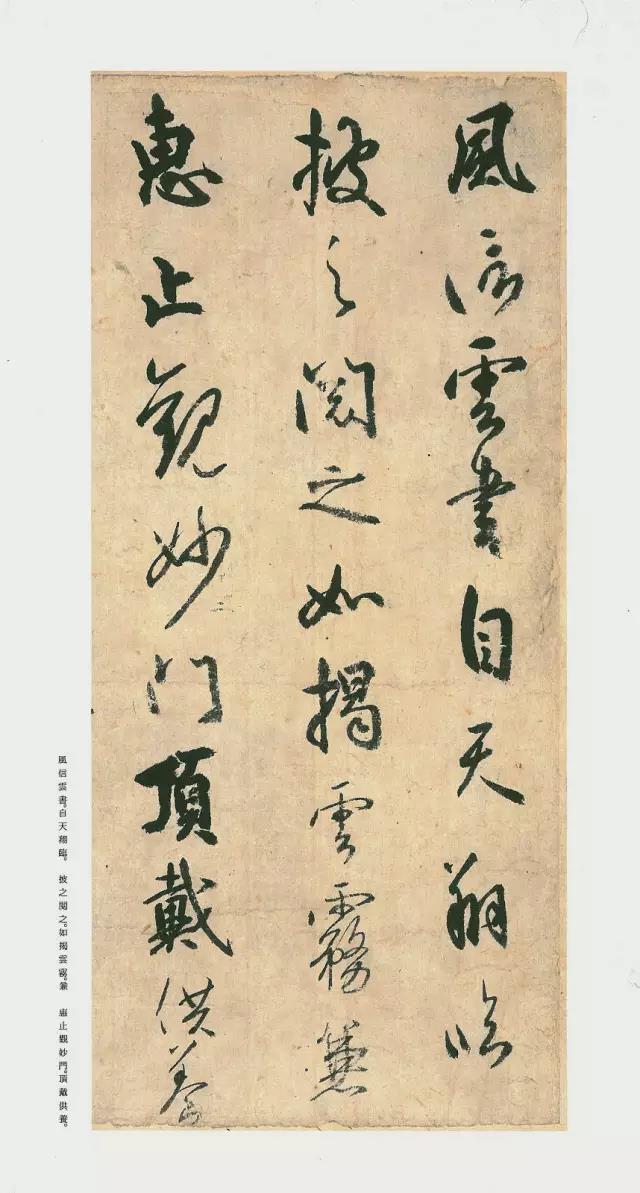 風信雲書自天翔臨
披之閱之如揭雲霧兼
惠止觀妙門頂戴供養
風信雲書。自天翔臨。 披之閱之。如揭雲霧。兼 惠止觀妙門。頂戴供養。